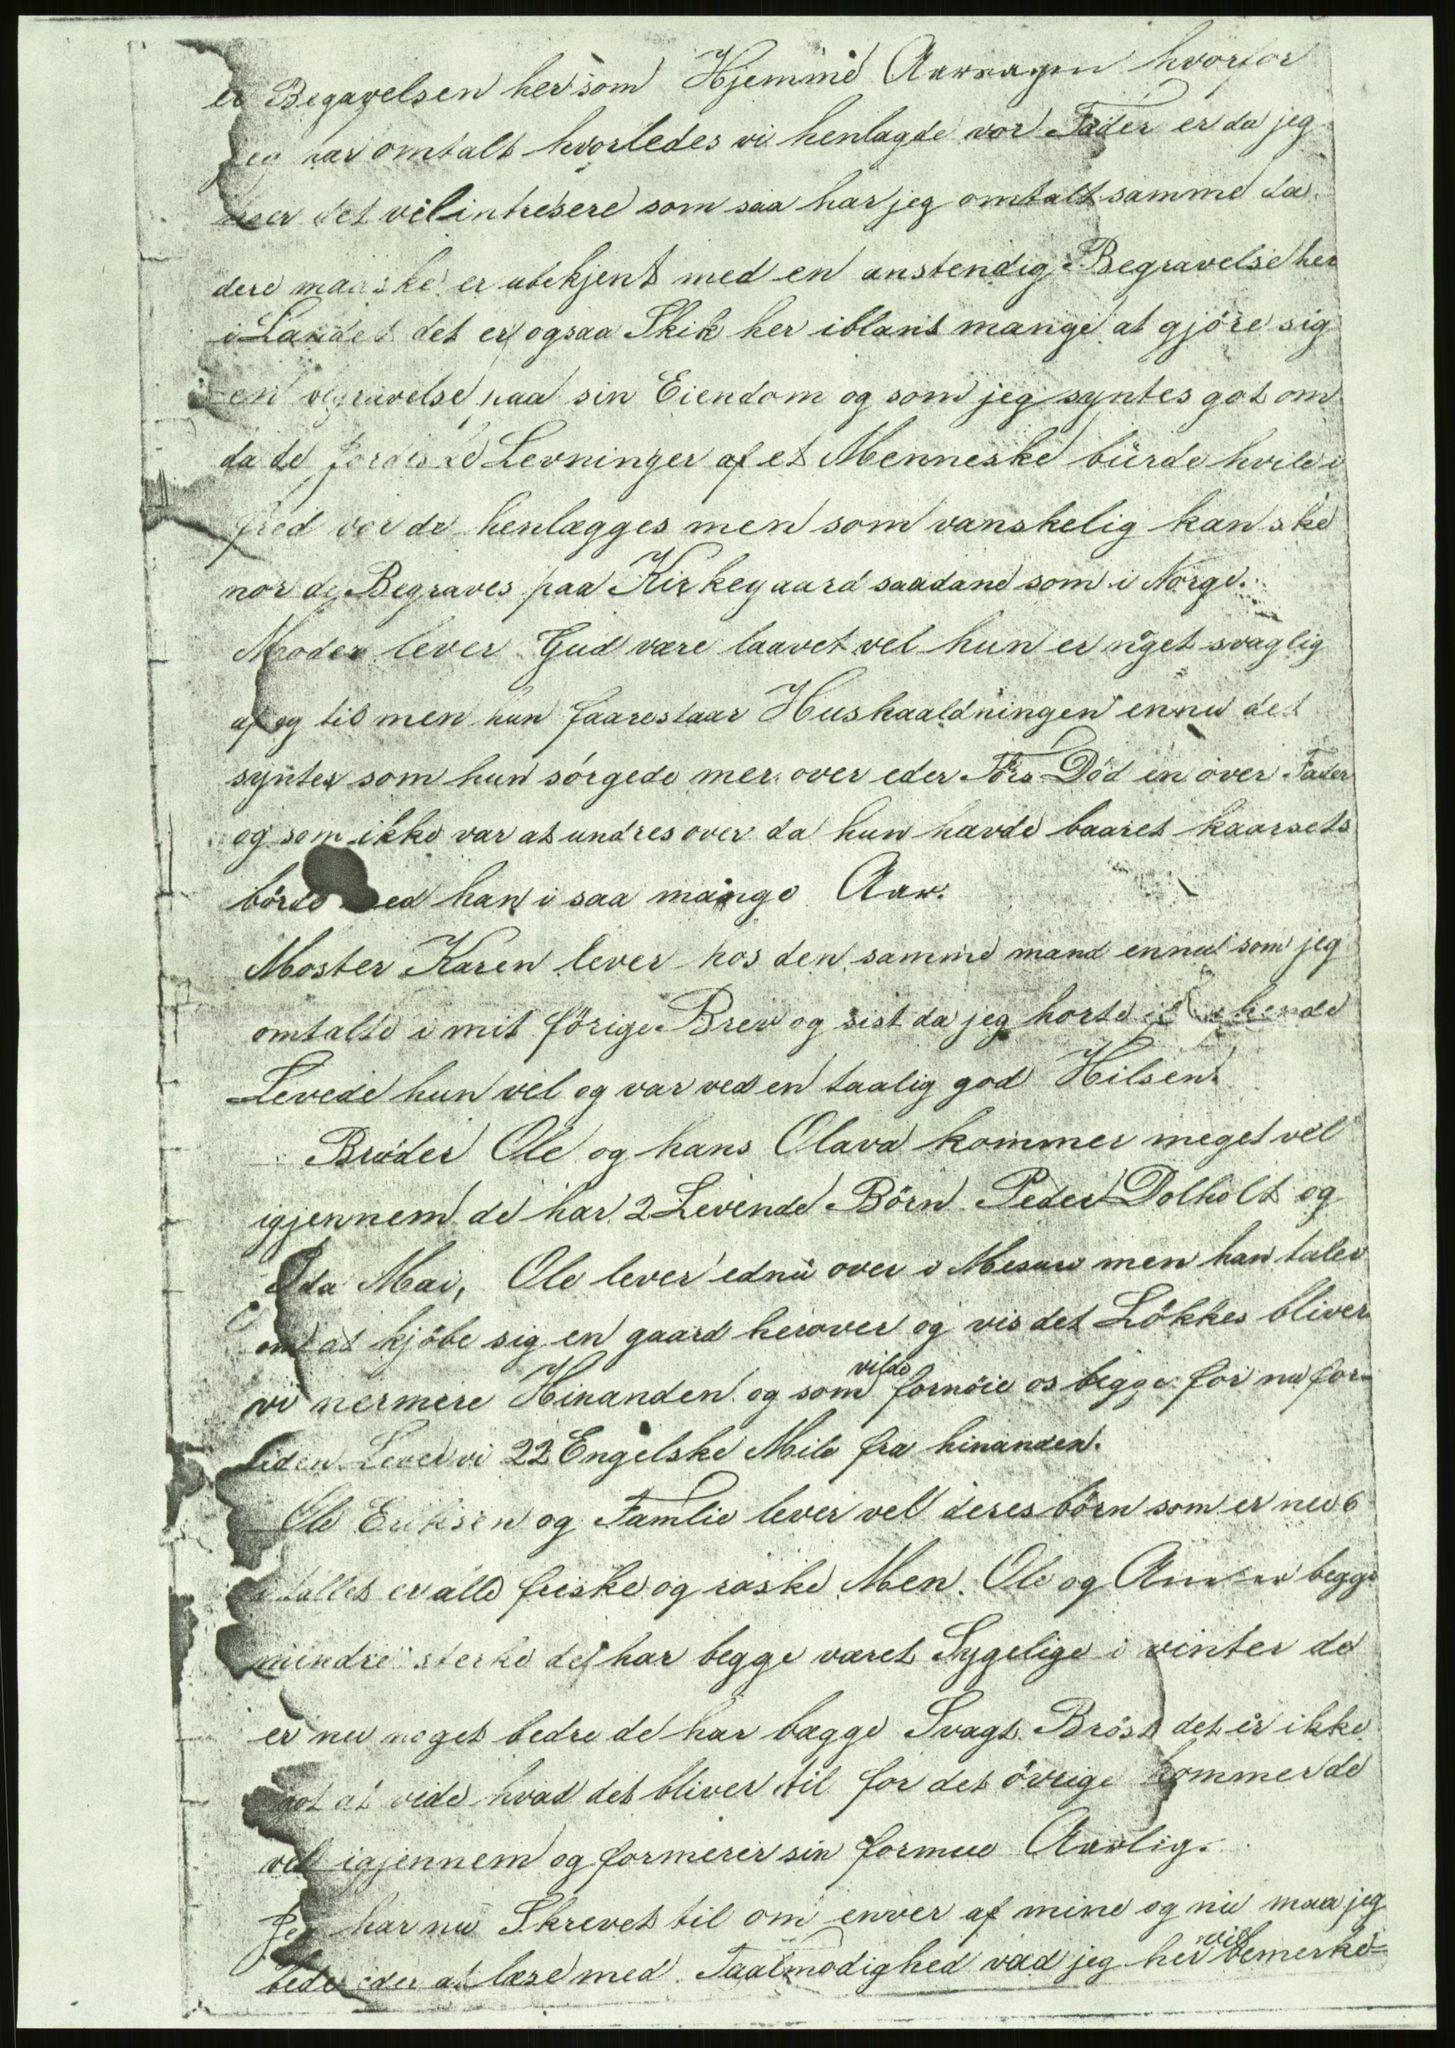 er Begavelsen her som Hjemme Aarsagen hvorfor
jeg har omtalt hvorledes vi henlagde vor Fader er da jeg
det vil intresere som saa har jeg omtalt samme da
dere maaske er ubekjent med en anstendig Begravelse her
i Landet det er ogsaa Skik her iblant mange at gjöre sig
en begravelse paa sin Eiendom og som jeg syntes got om
da de jordiske Levninger af et Menneske bürde hvile i
fred vor de henlægges men som vanskelig kan ske
nor de Begraves paa Kirkegaard saadane som i Norge.
Moder lever Gud være laavet vel hun er nöget svaglig
af og til men hun faarestaar Huskaaldningen ennu det
syntes som hun sörgede mer over eder Fars Död en over Fader
og som ikke var at undres over da hun havde baaret kaarsets
börde med han i saa mange Aar.
Moster Karen lever hos den samme mand ennu som jeg
omtalte i mit förige Brev og sist da jeg horte hende
Levede hun vel og var ved en taalig god Hilsen.
Broder Ole og hans Olava kommer meget vel
igjennem de har 2 Levende Börn Peder Dolholt og
Ida Mai, Ole lever ednu over i Mesuri men han taler
om at kjöbe sig en gaard herover og vis det Lökkes bliver
vi nermere Hinanden og som vilde fornöie os begge for nu for-
tiden Lever vi 22 Engelske Mile fra hinanden.
Ole Eriksen og Famlie lever vel deres börn som er nu 6
i tallet er alle friske og raske Men. Ole og begge
mindre sterke de har begge været Sygelige i vinter de
er nu noget bedre de har bægge Svagt Bröst det er ikke
got at vide hvad det bliver til for det övrige kommer de
vel igjennem og formerer sin formue Aarlig.
Jeg har nu Skrevet til om enver af mine og nu maa jeg
bede eder at læse med Taalmodighed vad jeg her vil bemerke=